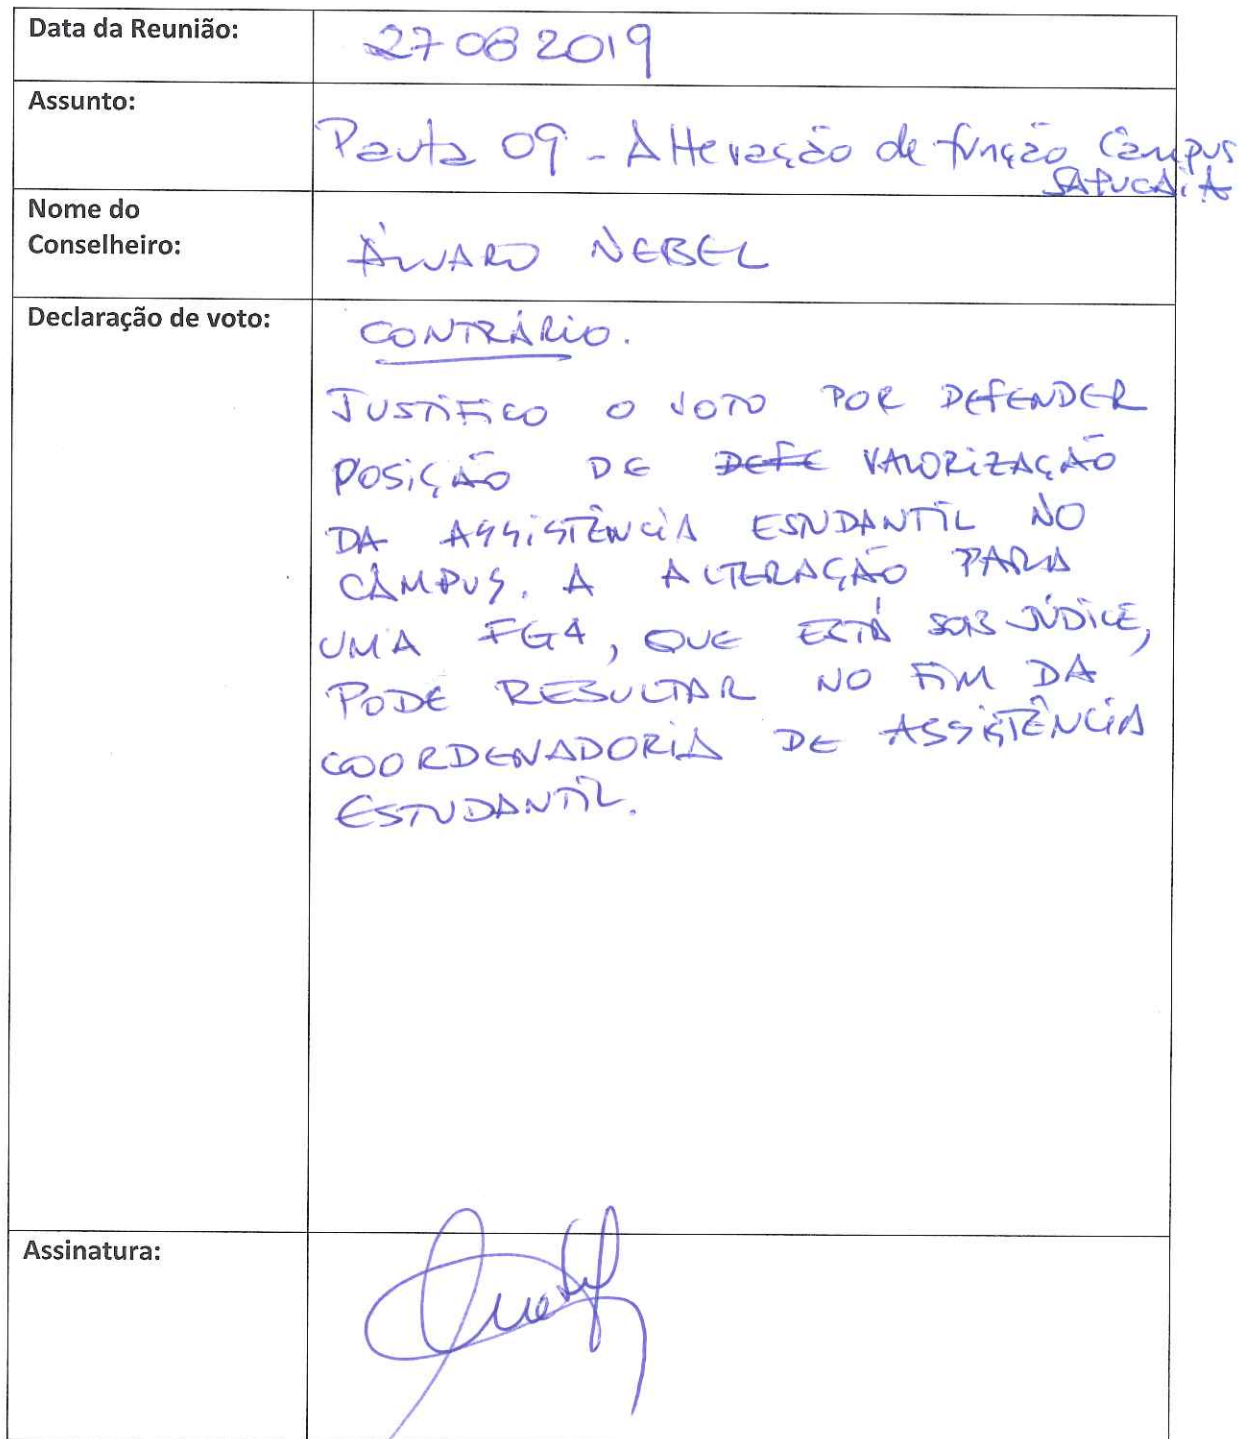 Data da Reunião:
27 08 2019
Assunto:
Pauta 09 - Alteração de função Câmpus
SAPUCAIA
Nome do
Conselheiro:
ÁLVARO NEBEL
Declaração de voto:
CONTRÁRIO.
JUSTIFICO O VOTO POR DEFENDER
POSIÇÃO DE DEFE VALORIZAÇÃO
DA ASSISTÊNCIA ESTUDANTIL NO
CÂMPUS. A ALTERAÇÃO PARA
UMA FG4, QUE ESTÁ SOB JÚDICE,
PODE RESULTAR NO FIM DA
COORDENADORIA DE ASSISTÊNCIA
ESTUDANTIL.
Assinatura: